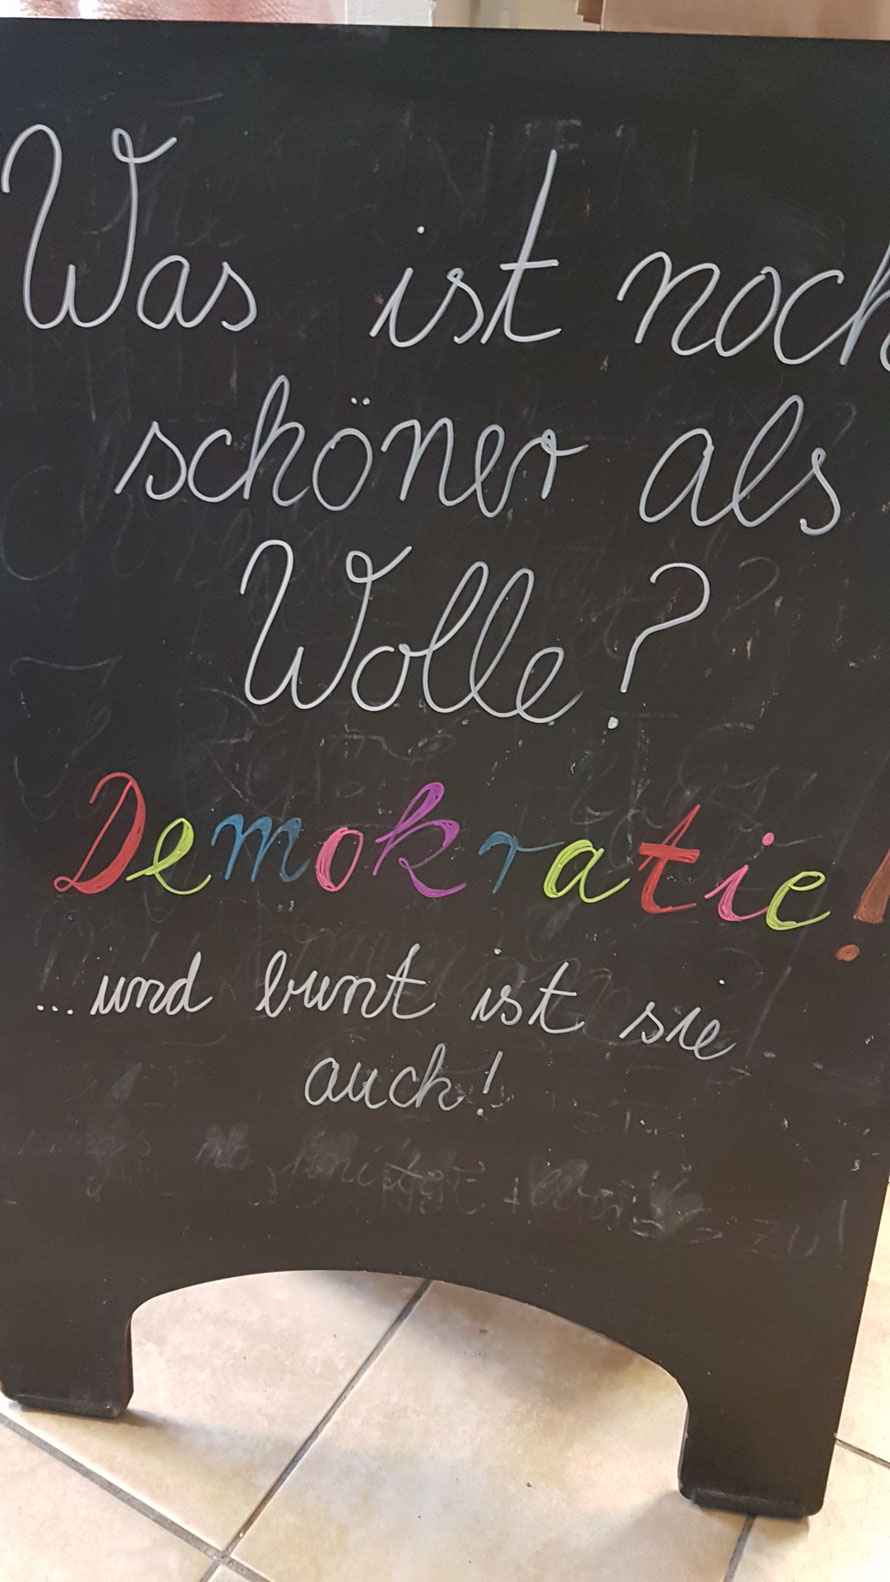 Was ist noch
schöner als
Wolle?
Demokratie!
...und bunt ist sie
auch!